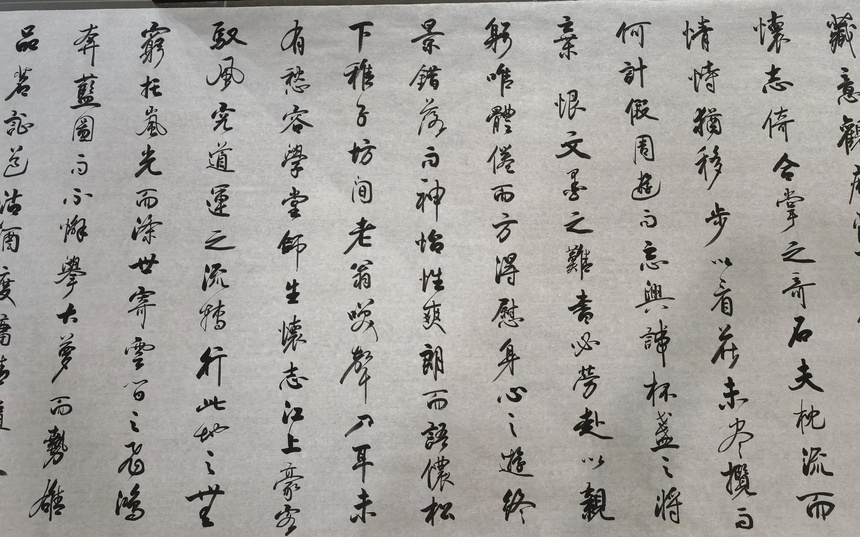 藏意觀
懷志倚合掌之奇石夫枕流而
情恃猶移步以看茲未尽攬而
何計假周遊而忘興諦杯盞之將
棄恨文墨之難書必勞赴以親
躬唯體倦而方得慰身心之遊終
景錯落而神怡性爽朗而語儂松
下稚子坊间老翁咲聲入耳未
有愁容學堂師生懷志江上豪客
馭風究道運之流轉行此地之無
窮在嵐光而滌世寄雲間之飛鴻
奔藍圖而不懈舉大夢而勢雄
品茗說道沽酒度